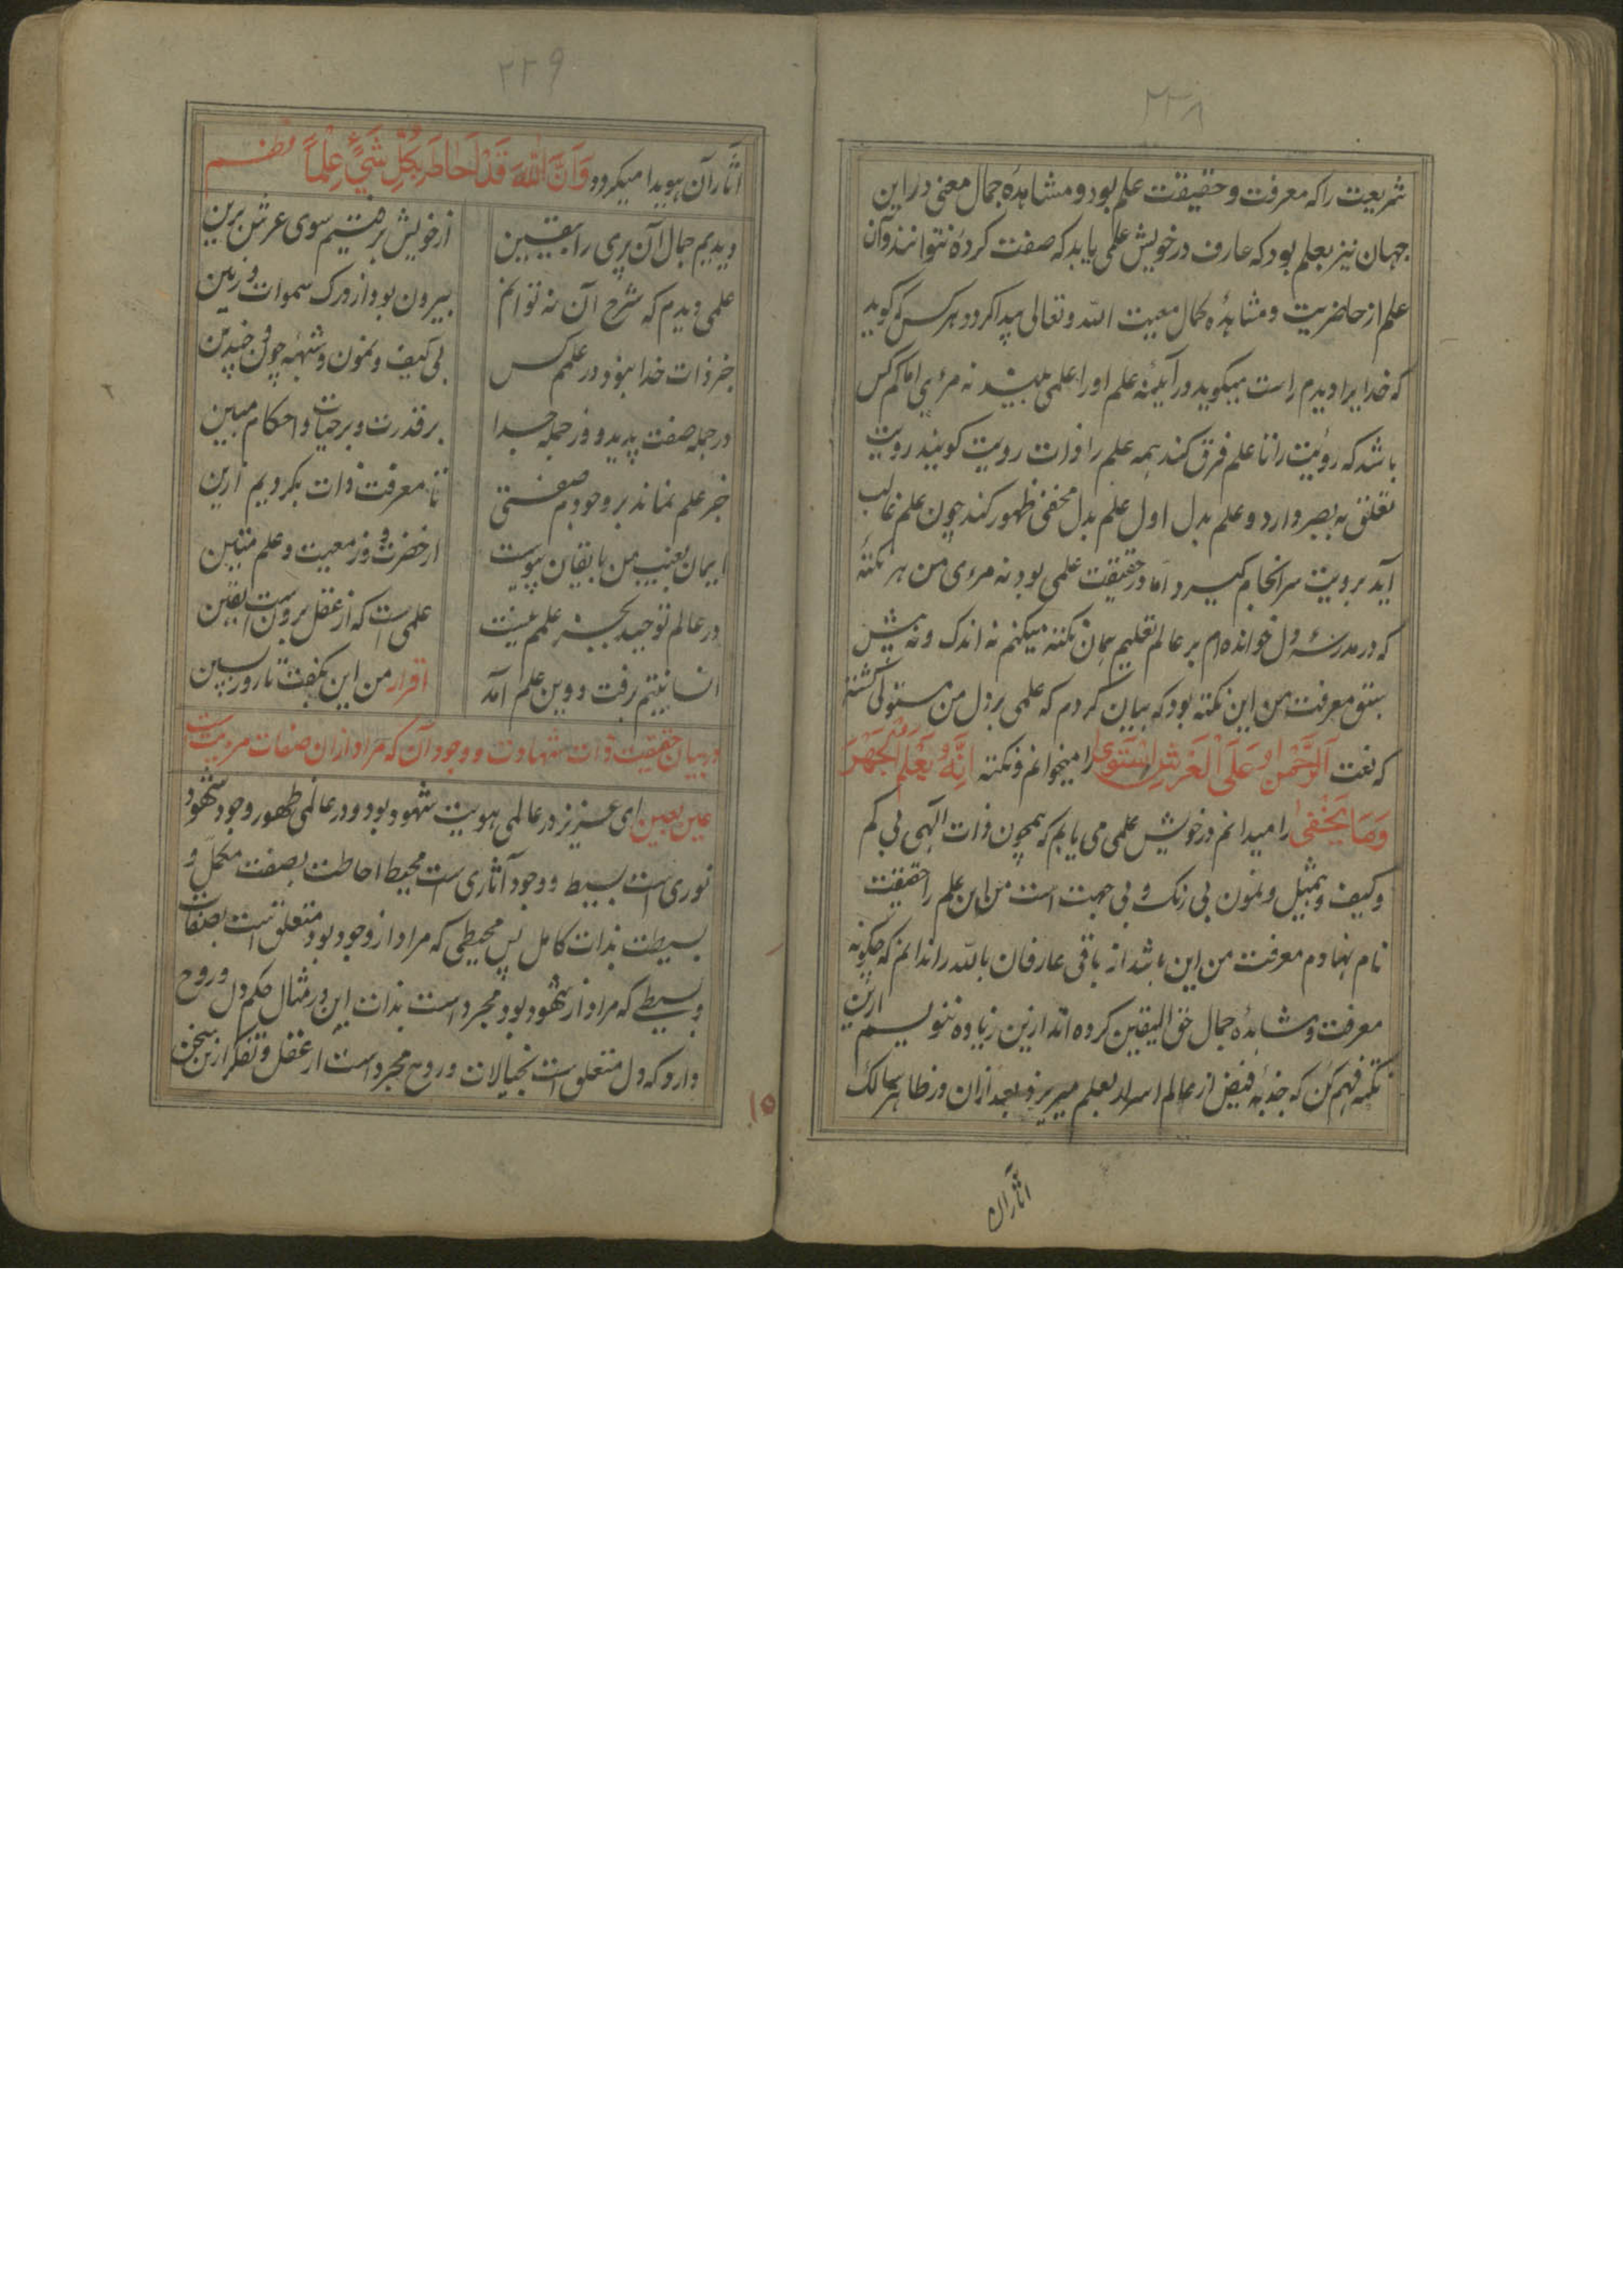 ۲۳۸
شریعت را که معرفت و حقیقت علم بود و مشاهدهٔ جمال معنی در این
جهان نیز بعلم بود که عارف در خویش علمی یابد که صفت کرده نتوانند و آن
علم از حاضریت و مشاهده کمال معیت الله و تعالی پیدا کردد هر کس که کوید
که خدایرا دیدم راست میکوید در آیٔینه علم او را علمی بیند نه مرئی اما کم کس
باشد که رؤیت را تا علم فرق کند همه علم را ذات رویت کویند رویت
تعلق به بصر دارد و علم بدل اول علم بدل مخفی ظهور کند چون علم غالب
آید برویت سرانجام کیرد اما در حقیقت علمی بود نه مرءی من هر نکتهٔ
که در مدرسهٔ دل خوانده‌ام بر عالم تعلیم همان نکته میکنم نه اندک و نه بیش
سبق معرفت من این نکته بود که بیان کردم که علمی بر دل من مستولی کشته
که نعت اَلرَّحْمٰنُ عَلَی الْعَرْشِ اسْتَوٰی را میخوانم و نکته اِنَّهُ یَعْلَمُ الْجَهْرَ
وَمَا یَخْفٰی را میدانم در خویش علمی می یابم که همچون ذات الهی بی کم
و کیف و تمثیل و نمون بی رنک و بی جهت است من این علم را حقیقت
نام نهادم معرفت من این باشد از باقی عارفان بالله را ندانم که چکونه
معرفت و مشاهدهٔ جمال حق الیقین کرده اند ازین زیاده ننویسم ازین
نکته فهم کن که جذبهٔ فیض از عالم اسرار بعلم میریزد بعد ازان در ظاهر سالک
آثار آن
۲۲۹
آثار آن هویدا میکردد وَاَنَّ اللّٰهَ قَدْ اَحَاطَ بِکُلِّ شَیْءٍ عِلْماً نظم
دیدیم جمال آن پری را بیقین از خویش برفتیم سوی عرش برین
علمی دیدم که شرح آن نه توانم بیرون بود از درک سموات و زمین
جز ذات خدا نبود در علمم کس بی کیف و نمون و شبهه چون و چنین
در جمله صفت پدید و در جمله جدا بر قدرت و بر حیات و احکام مبین
جز علم نماند بر وجودم صفتی تا معرفت ذات بکردیم ازین
ایمان بغیب من با یقان پیوست از حضرت و ز معیت و علم متین
در عالم توحید بجز علمم نیست علمی است که از عقل برونست یقین
انسانیتم برفت و وین علم آمد اقرار من این بکفت تا روز پسین
در بیان حقیقت ذات شهادت و وجود آن که مراد ازان صفات مردیست
عین بعین ای عزیز در عالمی هویت شهود بود و در عالمی ظهور وجود شهود
نوری است بسیط و وجود آثاری ست محیط احاطت بصفت مکمل و
بسیطت بذات کامل پس محیطی که مراد از وجود بود متعلق است بصفات
و بسیطی که مراد از شهود بود مجرد است بذات این در مثال حکم دل و روح
دارد که دل متعلق است بخیالات و روح مجرد است از عقل و تفکر ازین سخن
۱۵